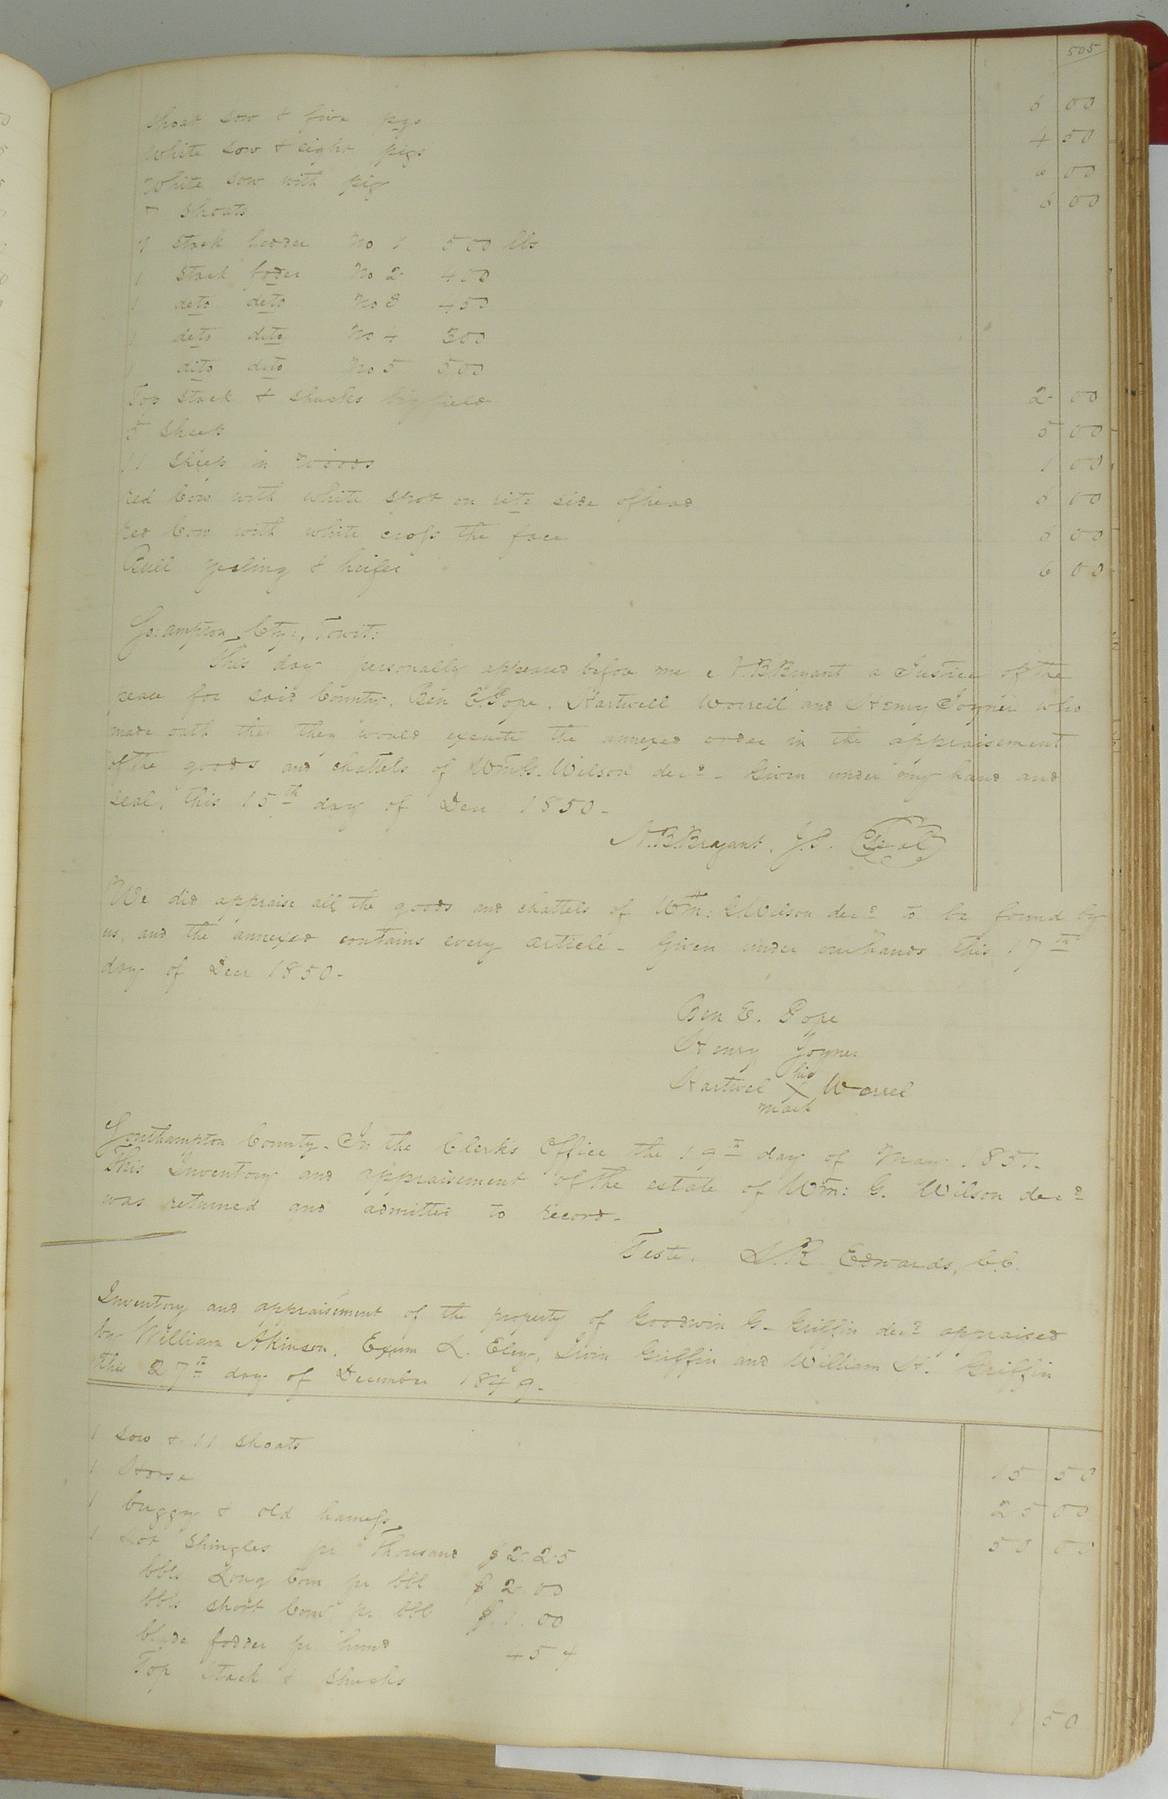 505
Shoat sow & five pigs 6 00
White sow & eight pigs 4 50
White sow with pig 00
7 Shoats 6 00
1 stack fodder No 1 500 lbs
1 stack foder No 2 450
1 deto deto No 3 450
1 deto dito No 4 300
1 dito deto No 5 500
Top stack & shucks big field 2 00
5 sheep 5 00
11 sheep in woods 1 00
Red Cow with white spot on side of head 6 00
Red Cow with white cross the face 6 00
Bull yealing & heifer 6 00
So:ampton Cty:, Towit:
This day personally appeared before me N. B. Bryant a Justice of the
peace for said County, Ben E. Pope, Hartwell Worrell and Henry Joyner who
made oath that they would execute the annexed order in the appraisement
of the goods and chattels of Wm: G. Wilson decd - Given under my hand and
seal, this 15th day of Decr 1850 -
N. B. Bryant. J. P. (Seal)
We did appraise all the goods and chattels of Wm: G Wilson decd to be found by
us, and the annexed contains every article - Given under our hands this 17th
day of Decr 1850 -
Ben E. Pope
Henry Joyner
his
Hartwel X Worrel
mark
Southampton County - In the Clerks Office the 19th day of May 1851.
This Inventory and appraisement of the estate of Wm: G. Wilson decd
was returned and admitted to record -
Teste. L. R. Edwards, C. C.
Inventory and appraisement of the property of Goodwin G. Griffin decd appraised
by William Akinson, Exum L. Eley, Griffin and William H. Griffin
this 27th day of December 1849 -
1 sow & 11 shoats 15 50
1 Horse 25 00
1 buggy & old harness 50 00
1 Lot Shingles pr Thousand $2.25
bbls Long Corn pr bbl $2.00
bbls short Corn pr bbl $1.00
blade fodder pr hund 45
Top stack & shucks 1 50